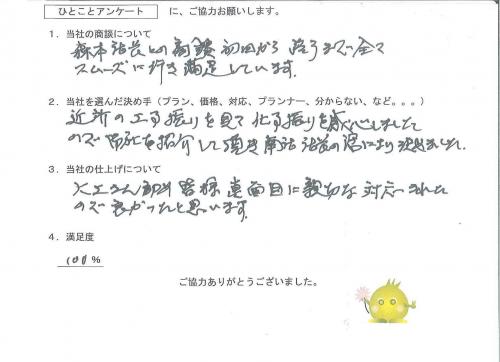 ひとことアンケート に、ご協力お願いします。
1．当社の商談について
森本站長との商談 初回から 終了まで 全々
スムーズに行き満足しています。
2．当社を選んだ決め手（プラン、価格、対応、プランナー、分からない、など。。。）
近所の工事振りを見て 仕事振りを感心しました
ので 御社を紹介して頂き 決めました。
3．当社の仕上げについて
大工さん 皆様 真面目に親切な対応された
ので良かったと思います。
4．満足度
100%
ご協力ありがとうございました。